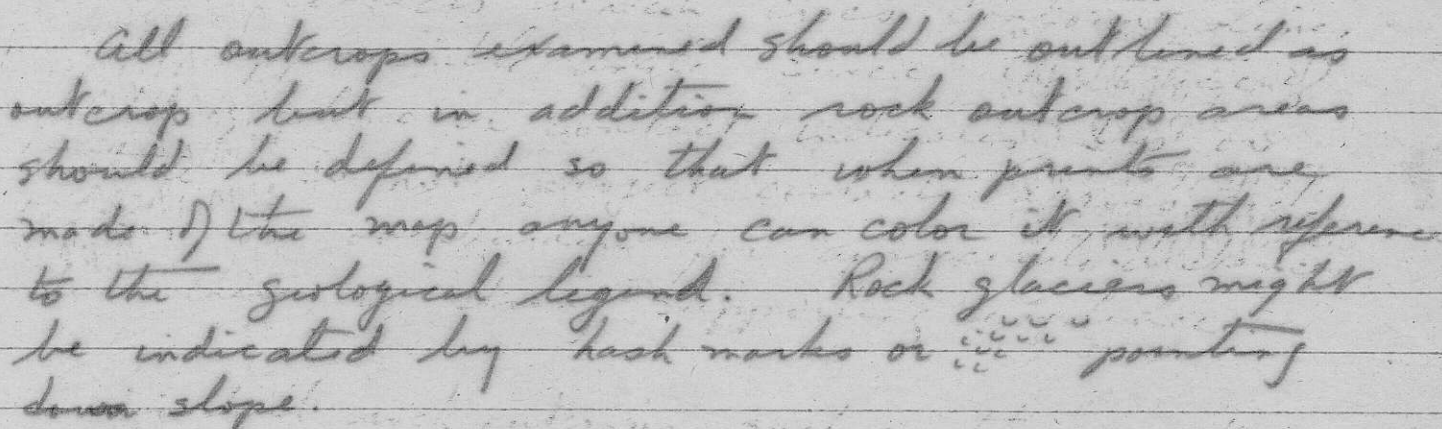 All outcrops examined should be outlined as
outcrop but in addition rock outcrop areas
should be defined so that when prints are
made of the map anyone can color it with referenc
to the geological legend. Rock glaciers might
be indicated by hash marks or pointing
down slope.